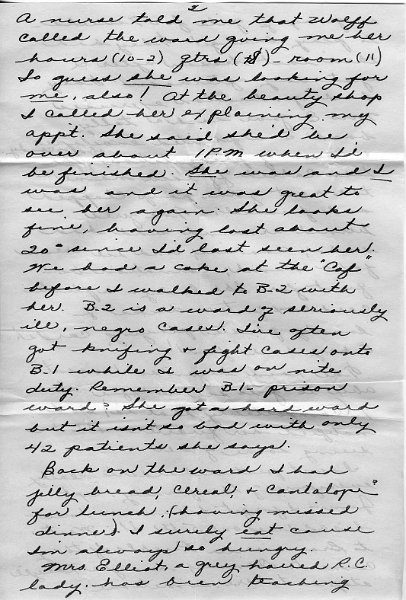 2
A nurse told me that Wolff
called the ward giving me her
hours (10-2) qtrs (8) - room (11)
So guess she was looking for
me, also! At the beauty shop
I called her explaining my
appt. She said she'd be
over about 1 P.M when I'd
be finished. She was and I
was and it was great to
see her again. She looks
fine, having lost about
20# since I'd last seen her.
We had a coke at the "Caf"
before I walked to B.2 with
her. B.2 is a ward of seriously
ill, negro cases. I've often
got knifing & fight cases onto
B.1 while I was on nite
duty. Remember B.1 - prison
ward? She got a hard ward
but it isn't so bad with only
42 patients she says.
Back on the ward I had
jelly bread, cereal, & cantalope
for lunch. (having missed
dinner) I surely eat cause
I'm always so hungry.
Mrs. Elliot, a grey haired R.C.
lady, has been teaching